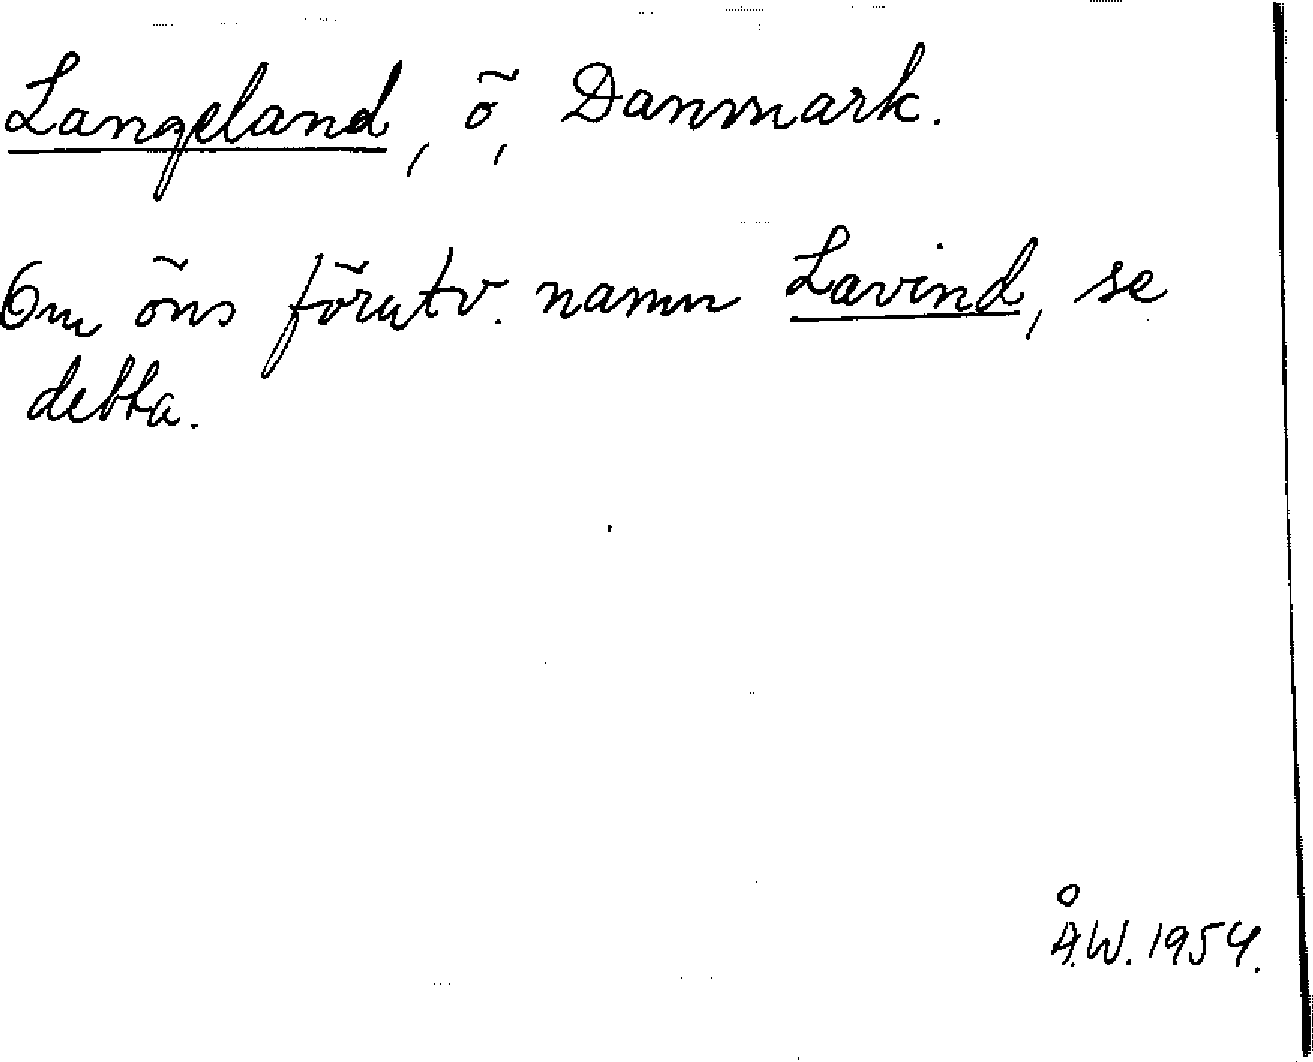 Langeland, ö, Danmark.
Om öns förutv. namn Lavind, se
detta.
Å.W. 1954.